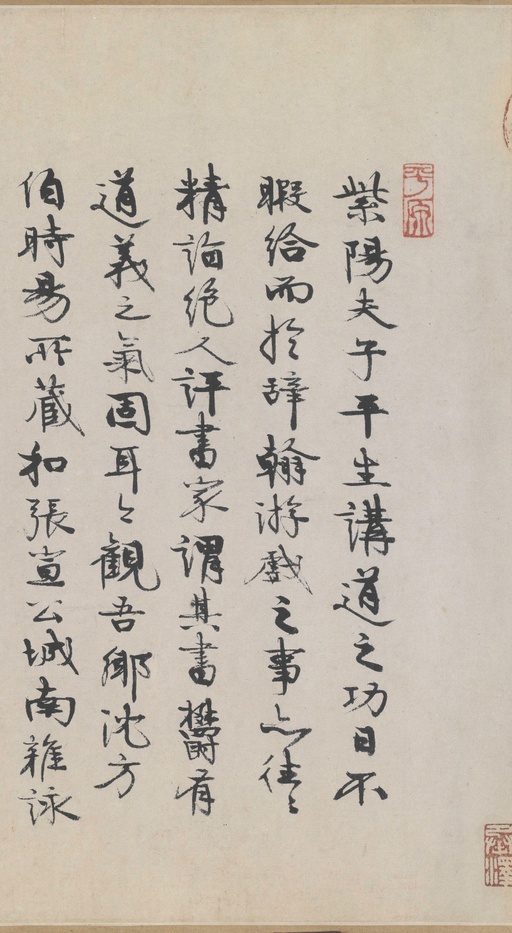 平原
紫陽夫子平生講道之功日不
暇給而於辞翰游戲之事亦往〻
精詣絶人評書家謂其書欝有
道義之氣固耳今觀吾鄉沈方
伯時昜所蔵和張宣公城南雜詠